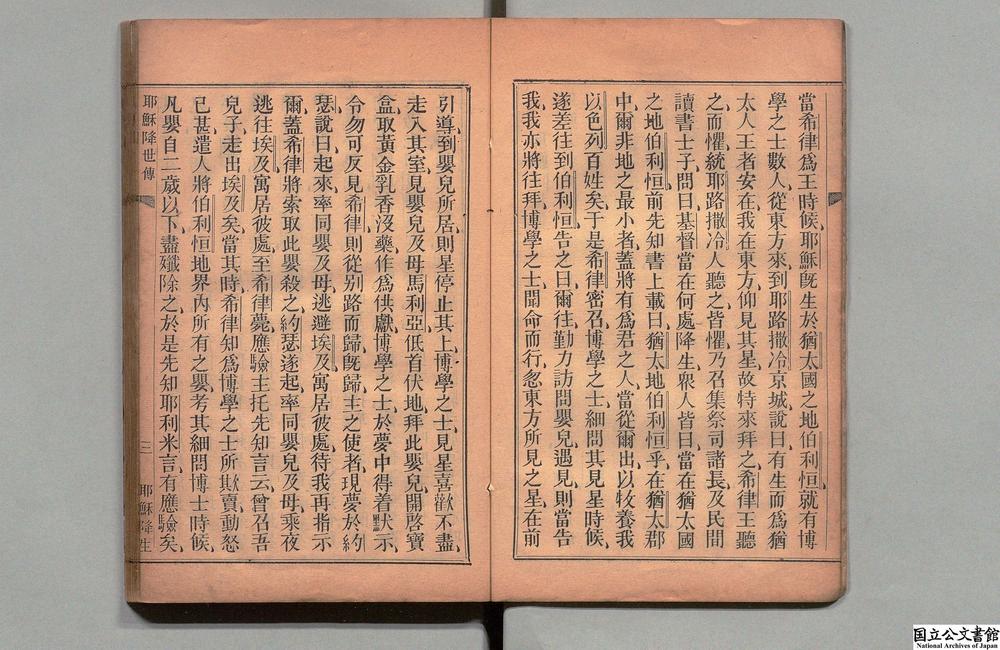 當希律爲王時候、耶穌旣生於猶太國之地伯利恒、就有博
學之士數人、從東方來、到耶路撒冷京城、說曰、有生而爲猶
太人王者安在、我在東方、仰見其星、故特來拜之、希律王聽
之而懼、統耶路撒冷人聽之、皆懼、乃召集祭司諸長、及民間
讀書士子、問曰、基督當在何處降生、衆人皆曰、當在猶太國
之地伯利恒、前先知書上載曰、猶太地伯利恒乎、在猶太郡
中、爾非地之最小者、蓋將有爲君之人、當從爾出、以牧養我
以色列百姓矣、于是希律密召博學之士、細問其見星時候、
遂差往到伯利恒、告之曰、爾往勤力訪問嬰兒、遇見則當告
我、我亦將往拜、博學之士、聞命而行、忽東方所見之星、在前
引導、到嬰兒所居、則星停止其上、博學之士、見星喜歡不盡、
走入其室、見嬰兒及母馬利亞、低首伏地、拜此嬰兒、開啓寶
盒、取黃金乳香沒藥、作爲供獻、博學之士、於夢中得着默示、
令勿可反見希律、則從别路而歸、旣歸、主之使者、現夢於約
瑟、說曰、起來、率同嬰及母、逃避埃及、寓居彼處、待我再指示
爾、蓋希律將索取此嬰殺之、約瑟遂起、率同嬰兒及母、乘夜
逃往埃及、寓居彼處、至希律薨、應驗主托先知言云、曾召吾
兒子、走出埃及矣、當其時、希律知爲博學之士所欺賣、動怒
已甚、遣人將伯利恒地界內、所有之嬰、考其細問博士時候、
凡嬰自二歲以下、盡殲除之、於是先知耶利米言、有應驗矣、
耶穌降世傳 三 耶穌降生
国立公文書館
National Archives of Japan